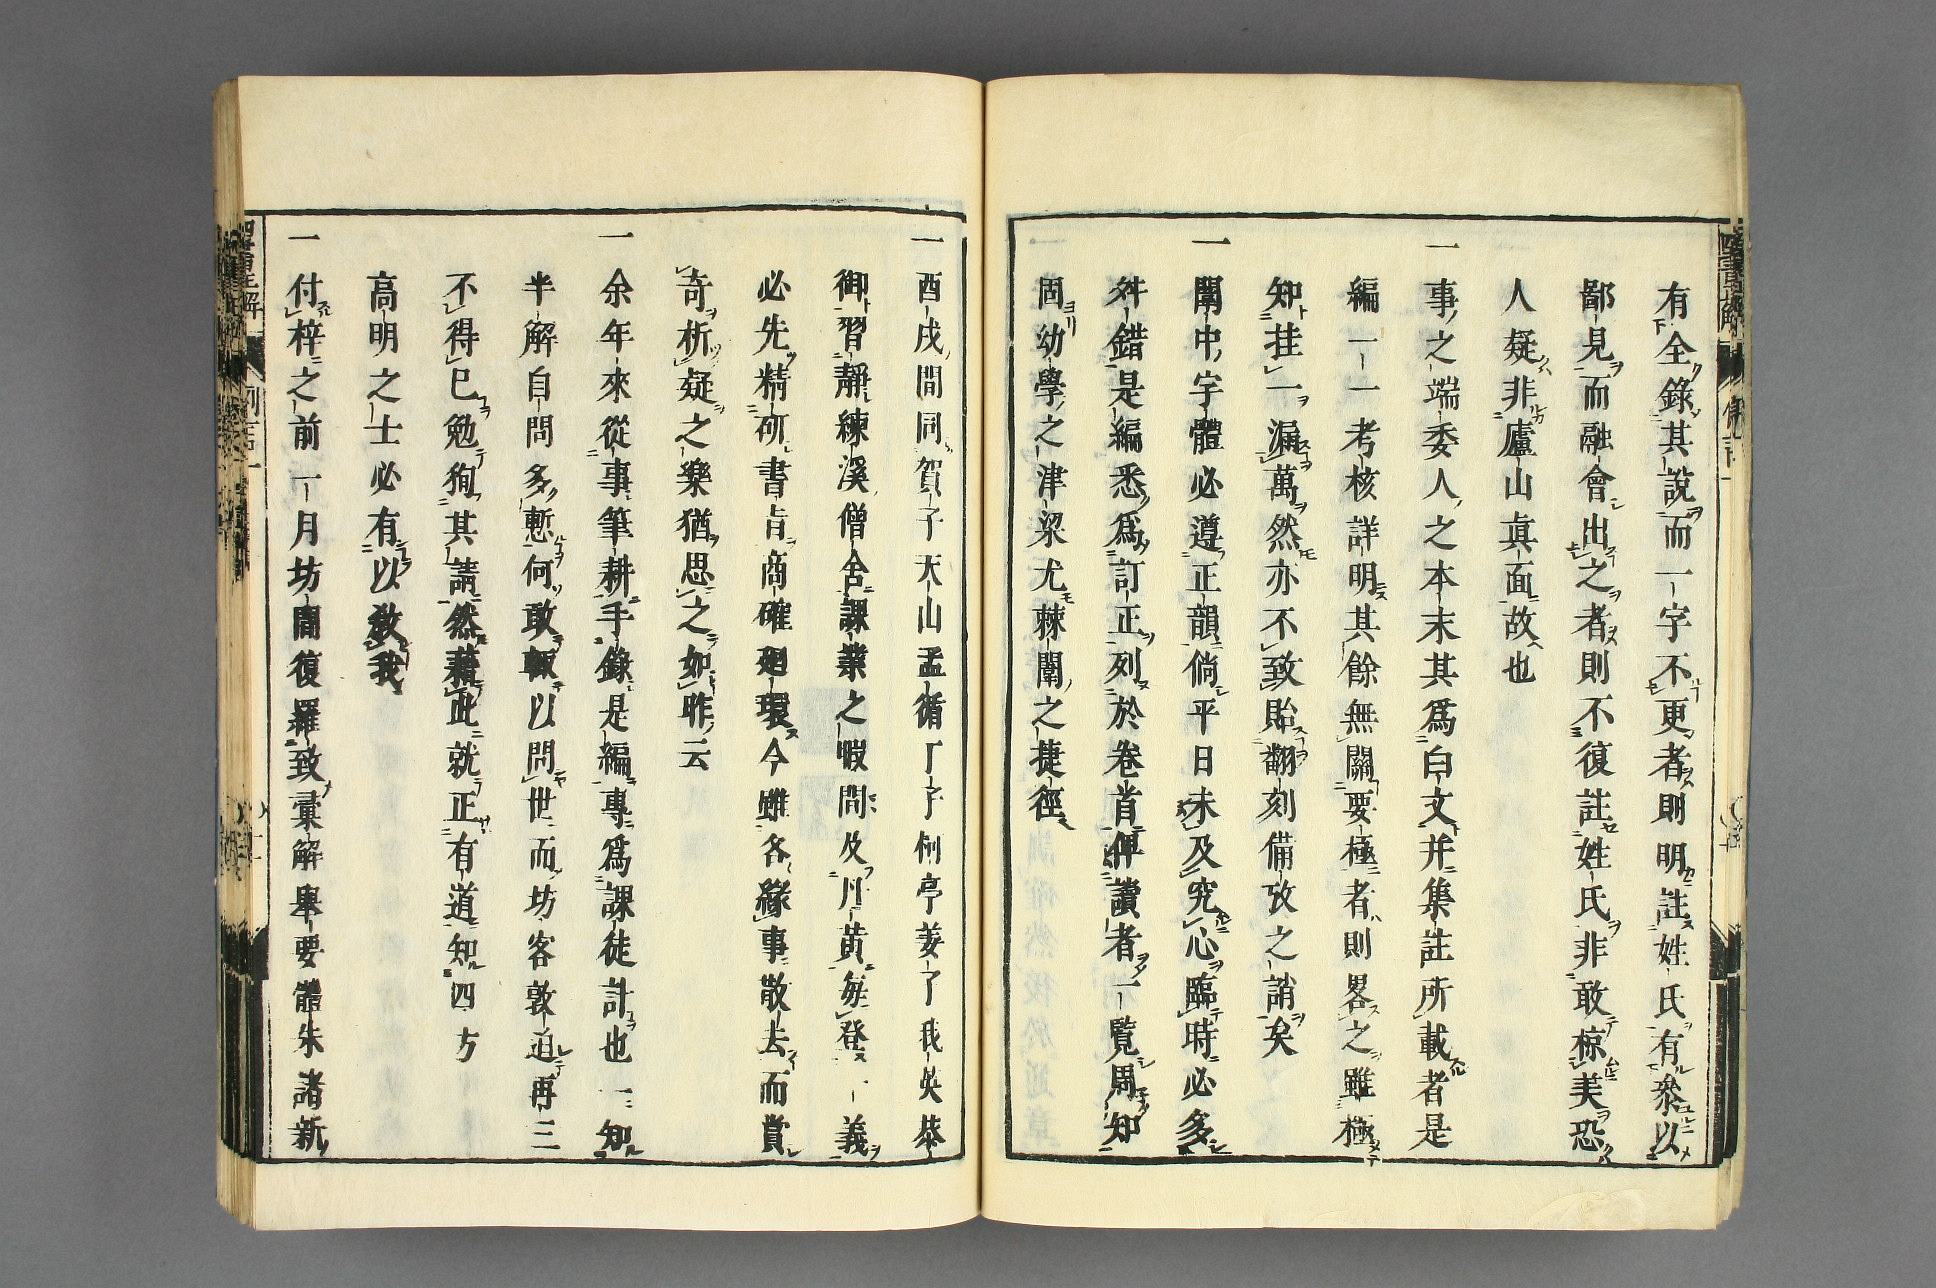 有全錄其說而一字不更者則明註姓氏有叅以
鄙見而融會出之者則不復註姓氏非敢掠美恐
人疑非廬山真面故也
一事之端委人之本末其為白文并集註所載者是
編一一考核詳明其餘無關要極者則畧之雖極
知挂一漏萬然亦不致貽翻刻備攷之誚矣
一闈中字體必遵正韻倘平日未及究心臨時必多
舛錯是編悉為訂正列於卷首俾讀者一覽周知
固幼學之津梁尤棘闈之捷徑
一酉戌間同賀子天山孟循丁子何亭姜了我英恭
御習靜練溪僧舍課業之暇問及丹黃每登一義
必先精研書旨商確廻環今雖各緣事散去而賞
奇析疑之樂猶思之如昨云
一余年來從事筆耕手錄是編專為課徒計也一知
半解自問多慙何敢輒以問世而坊客敦迫再三
不得已勉狥其請然藉此就正有道知四方
高明之士必有以敎我
一付梓之前一月坊間復羅致彙解舉要體朱諸新